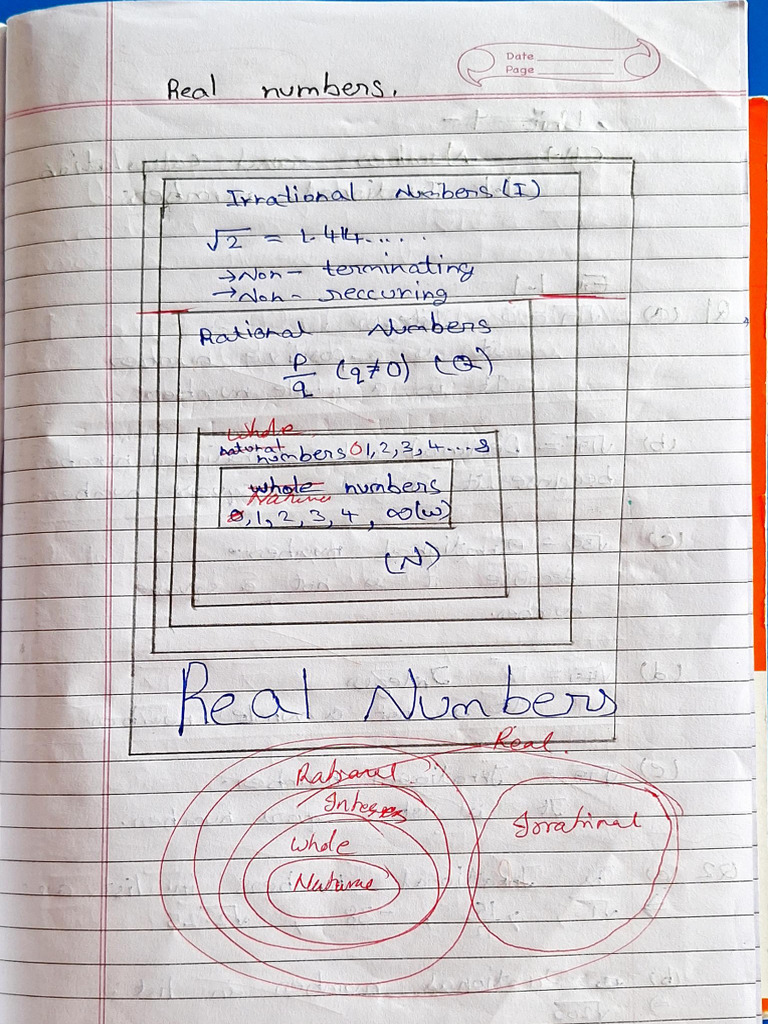 Date
Page
Real numbers.
Irrational Numbers (I)
√2 = 1.414.....
→ Non - terminating
→ Non - reccuring
Rational Numbers
p/q (q≠0) (Q)
Whole
natural numbers 0 1, 2, 3, 4 ...
whole numbers
Natural
0, 1, 2, 3, 4, ∞ (w)
(N)
Real Numbers
Real.
Rational
Integers
Irrational
Whole
Natural